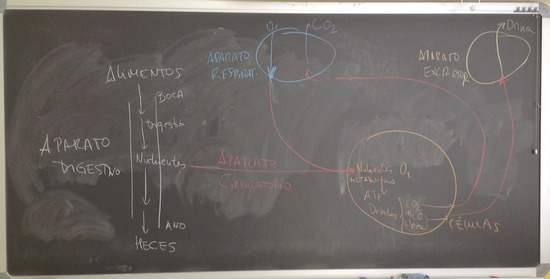 O₂
CO₂
Orina
APARATO
RESPIRAT.
APARATO
EXCRETOR
ALIMENTOS
BOCA
Digestió
APARATO
DIGESTIVO
Nutrientes
APARATO
CIRCULATORIO
Nutrientes O₂
METABOLISMO
ATP
Desechos
CO₂
H₂O
Urea
CÉLULAS
ANO
HECES